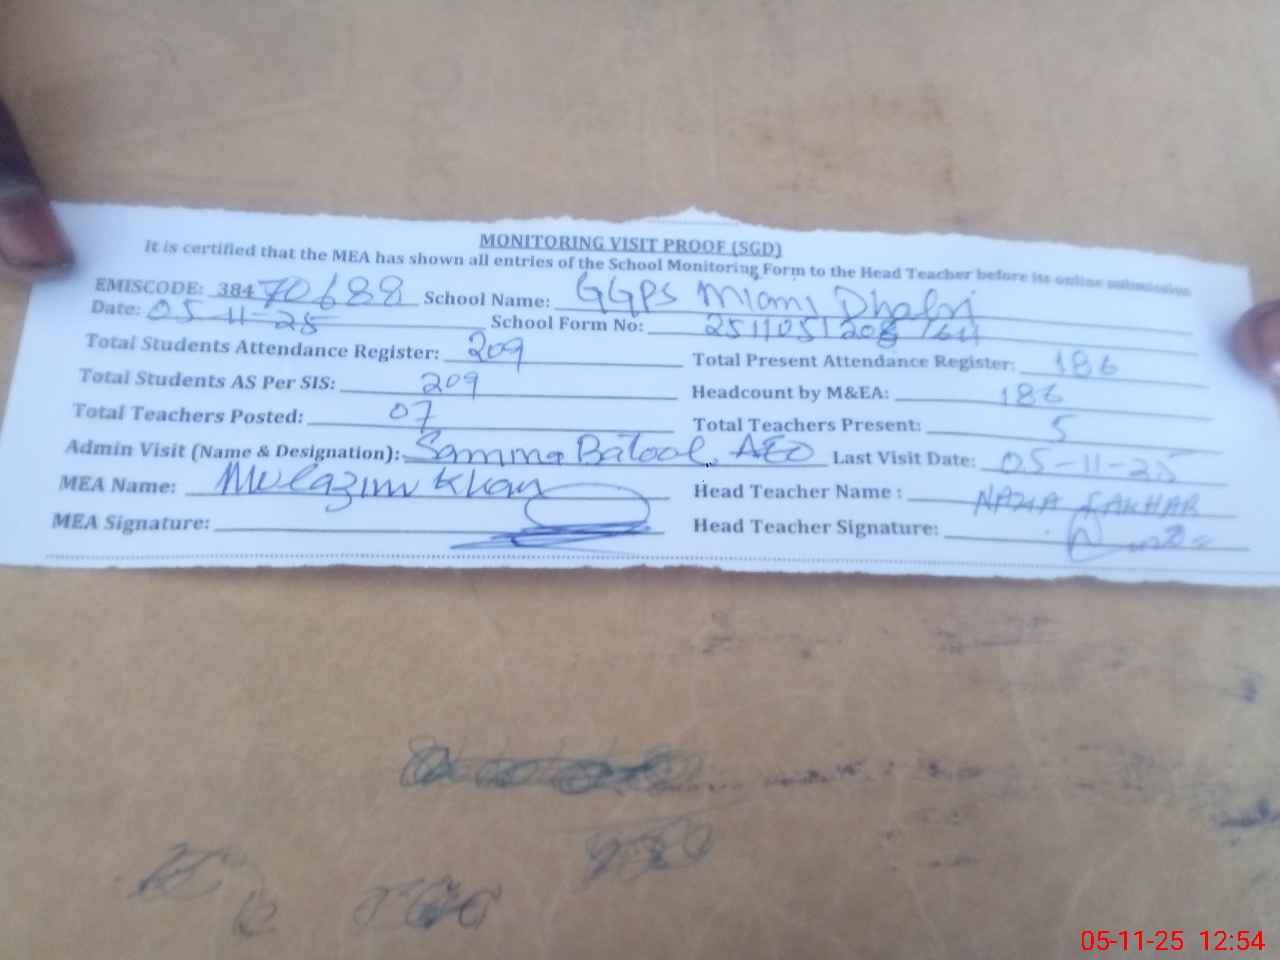 MONITORING VISIT PROOF (SGD)
It is certified that the MEA has shown all entries of the School Monitoring Form to the Head Teacher before its online submission
EMISCODE: 38470688 School Name: GGPS Miami Dhabri
Date: 05-11-25 School Form No: 251105
Total Students Attendance Register: 209 Total Present Attendance Register: 186
Total Students AS Per SIS: 209 Headcount by M&EA: 186
Total Teachers Posted: 07 Total Teachers Present: 5
Admin Visit (Name & Designation): Samma Batool, AEO Last Visit Date: 05-11-25
MEA Name: Mulazim Khan Head Teacher Name : NAZIA
MEA Signature: Head Teacher Signature:
05-11-25 12:54